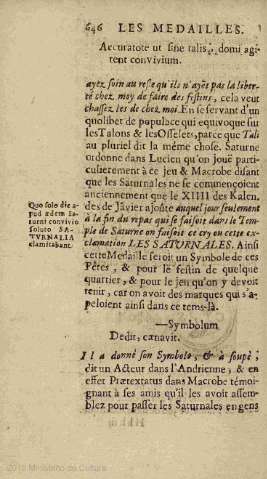 646 LES MEDAILLES.
Accuratote ut sine talis, domi agi-
tent convivium.
ayez soin au reste qu'ils n'ayēt pas la liber-
té chez moy de faire des festins, cela veut
chassez les de chez moi. En se servant d'un
quolibet de populace qui equivoque sur
les Talons & les Osselets, parce que Tali
au pluriel dit la même chose. Saturne
ordonne dans Lucien qu'on jouë parti-
culierement à ce jeu & Macrobe disant
que les Saturnales ne se commençoient
anciennement que le XIIII des Kalen-
des de Jāvier ajoste auquel jour seulement
à la fin du repas qui se faisoit dans le Tem-
ple de Saturne on faisoit ce cry ou cette ex-
clamation LES SATURNALES. Ainsi
cette Medaille seroit un Symbole de ces
Fêtes, & pour le festin de quelque
quartier, & pour le jeu qu'on y devoit
tenir, car on avoit des marques qui s'a-
peloient ainsi dans ce tems-là.
—Symbolum
Dedit, cœnavit.
Il a donné son Symbole, & à soupé,
dit un Acteur dans l'Andrienne, & en
effet Prætextatus dans Macrobe témoi-
gnant à ses amis qu'il les avoit assem-
blez pour passer les Saturnales en gens
Quo solo die a-
pud ædem Sa-
turni convivio
soluto SA-
TVRNALIA
clamitabant.
2013 Ministerio de Cultura